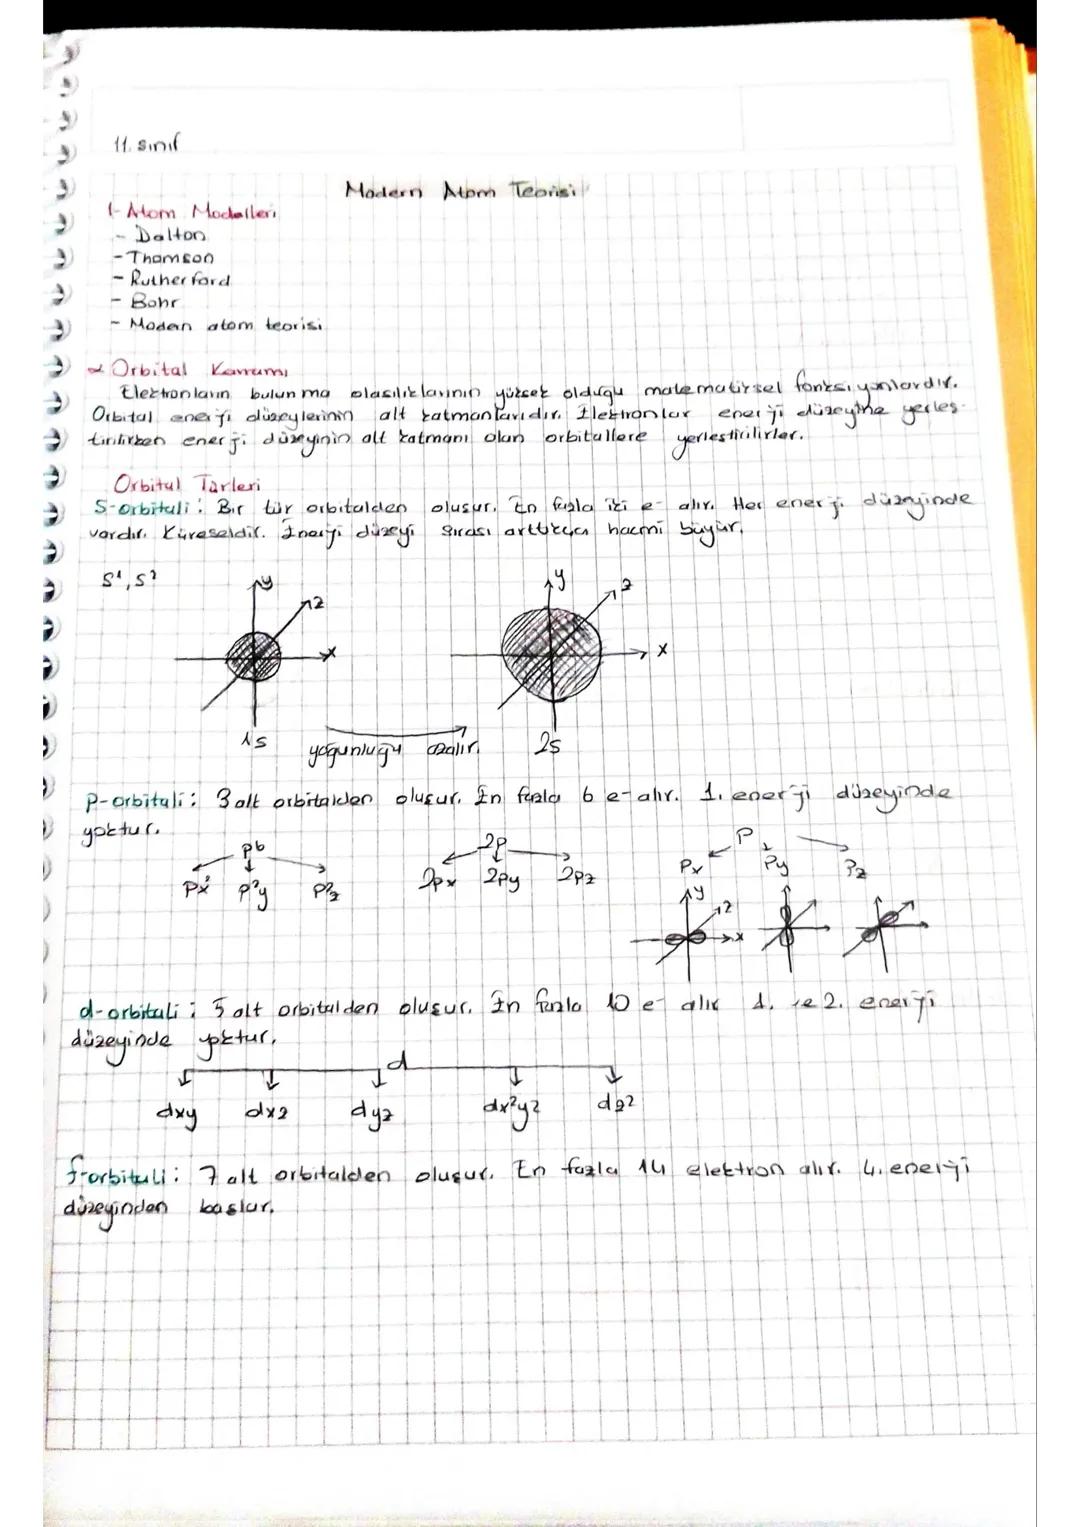 11. sınıf
Modern Atom Teorisi
1- Atom Modelleri
- Dalton
- Thomson
- Rutherford
- Bohr
- Modern atom teorisi
Orbital Kavramı
Elektronların bulunma olasılıklarının yüksek olduğu matematiksel fonksiyonlardır.
Orbital enerji düzeylerinin alt katmanlarıdır. Elektronlar enerji düzeyine yerleş-
tirilirken enerji düzeyinin alt katmanı olan orbitallere yerleştirilirler.
Orbital Türleri
S-orbitali: Bir tür orbitalden oluşur. En fazla iki e- alır. Her enerji düzeyinde
vardır. Küreseldir. Enerji düzeyi sırası arttıkça hacmi büyür.
S¹, S²
y z x
y z x
1s yoğunluğu azalır. 2s
p-orbitali: 3 alt orbitalden oluşur. En fazla 6 e- alır. 1. enerji düzeyinde
yoktur.
p6 2p P
Px² p²y p²z 2px 2py 2pz Px Py Pz
y z x
d-orbitali: 5 alt orbitalden oluşur. En fazla 10 e- alır 1. ve 2. enerji
düzeyinde yoktur.
d
dxy dxz dyz dx²y² dz²
f-orbitali: 7 alt orbitalden oluşur. En fazla 14 elektron alır. 4. enerji
düzeyinden başlar.